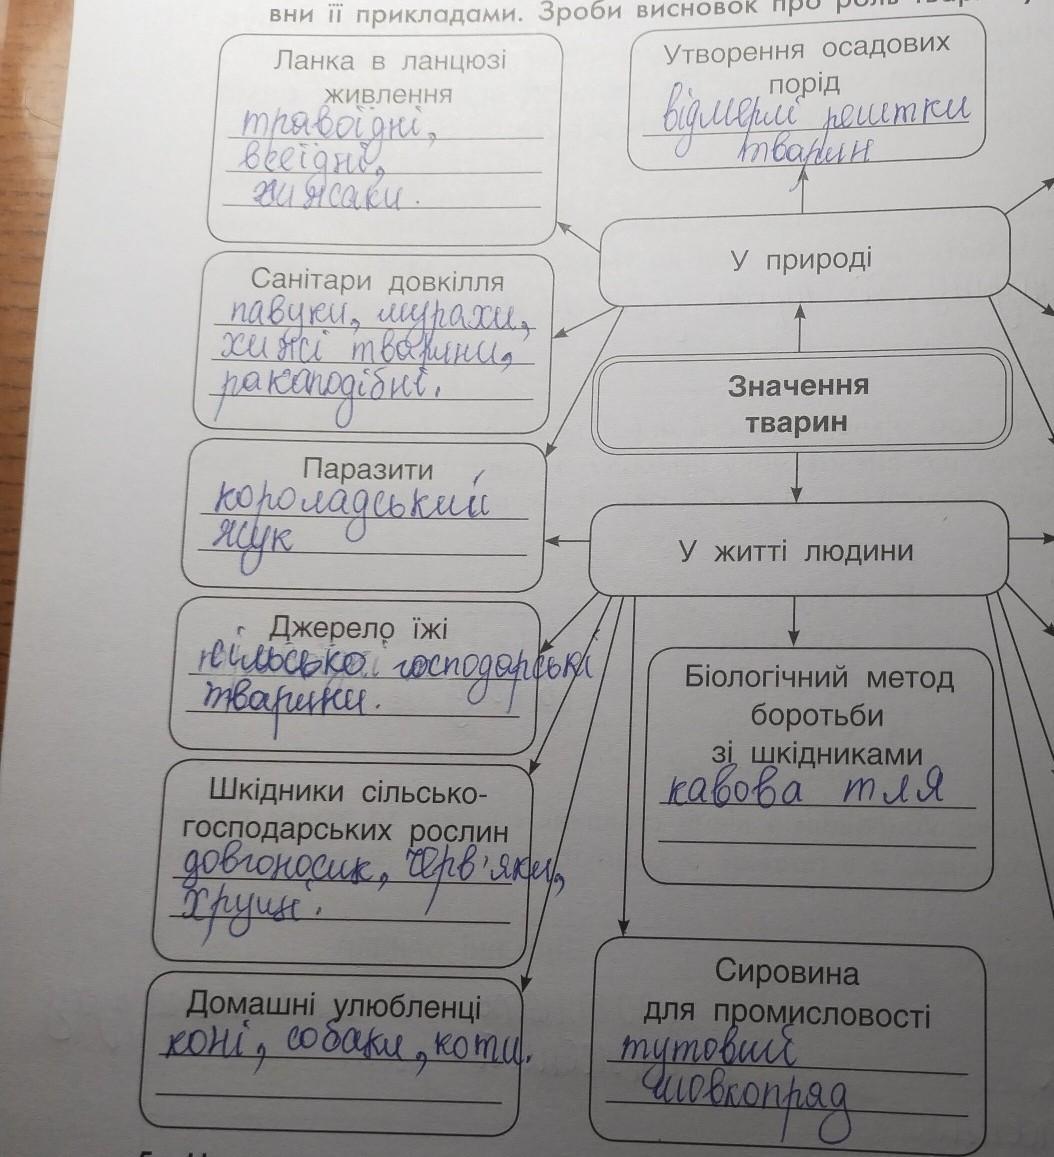 вни її прикладами. Зроби висновок про роль
Ланка в ланцюзі
живлення
травоїдні,
всеїдні,
хижаки.
Утворення осадових
порід
відмерлі рештки
тварин
У природі
Санітари довкілля
павуки, мурахи,
хижі тварини,
ракаподібні.
Значення
тварин
Паразити
короладський
жук
У житті людини
Джерело їжі
сільсько господарські
тварини.
Біологічний метод
боротьби
зі шкідниками
кавова тля
Шкідники сільсько-
господарських рослин
довгоносик, черв'яки,
хрущі.
Домашні улюбленці
коні, собаки, коти.
Сировина
для промисловості
тутовий
шовкопряд